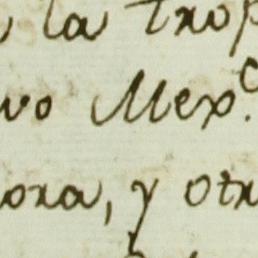 la trop
vo Mex.o
ora, y otr